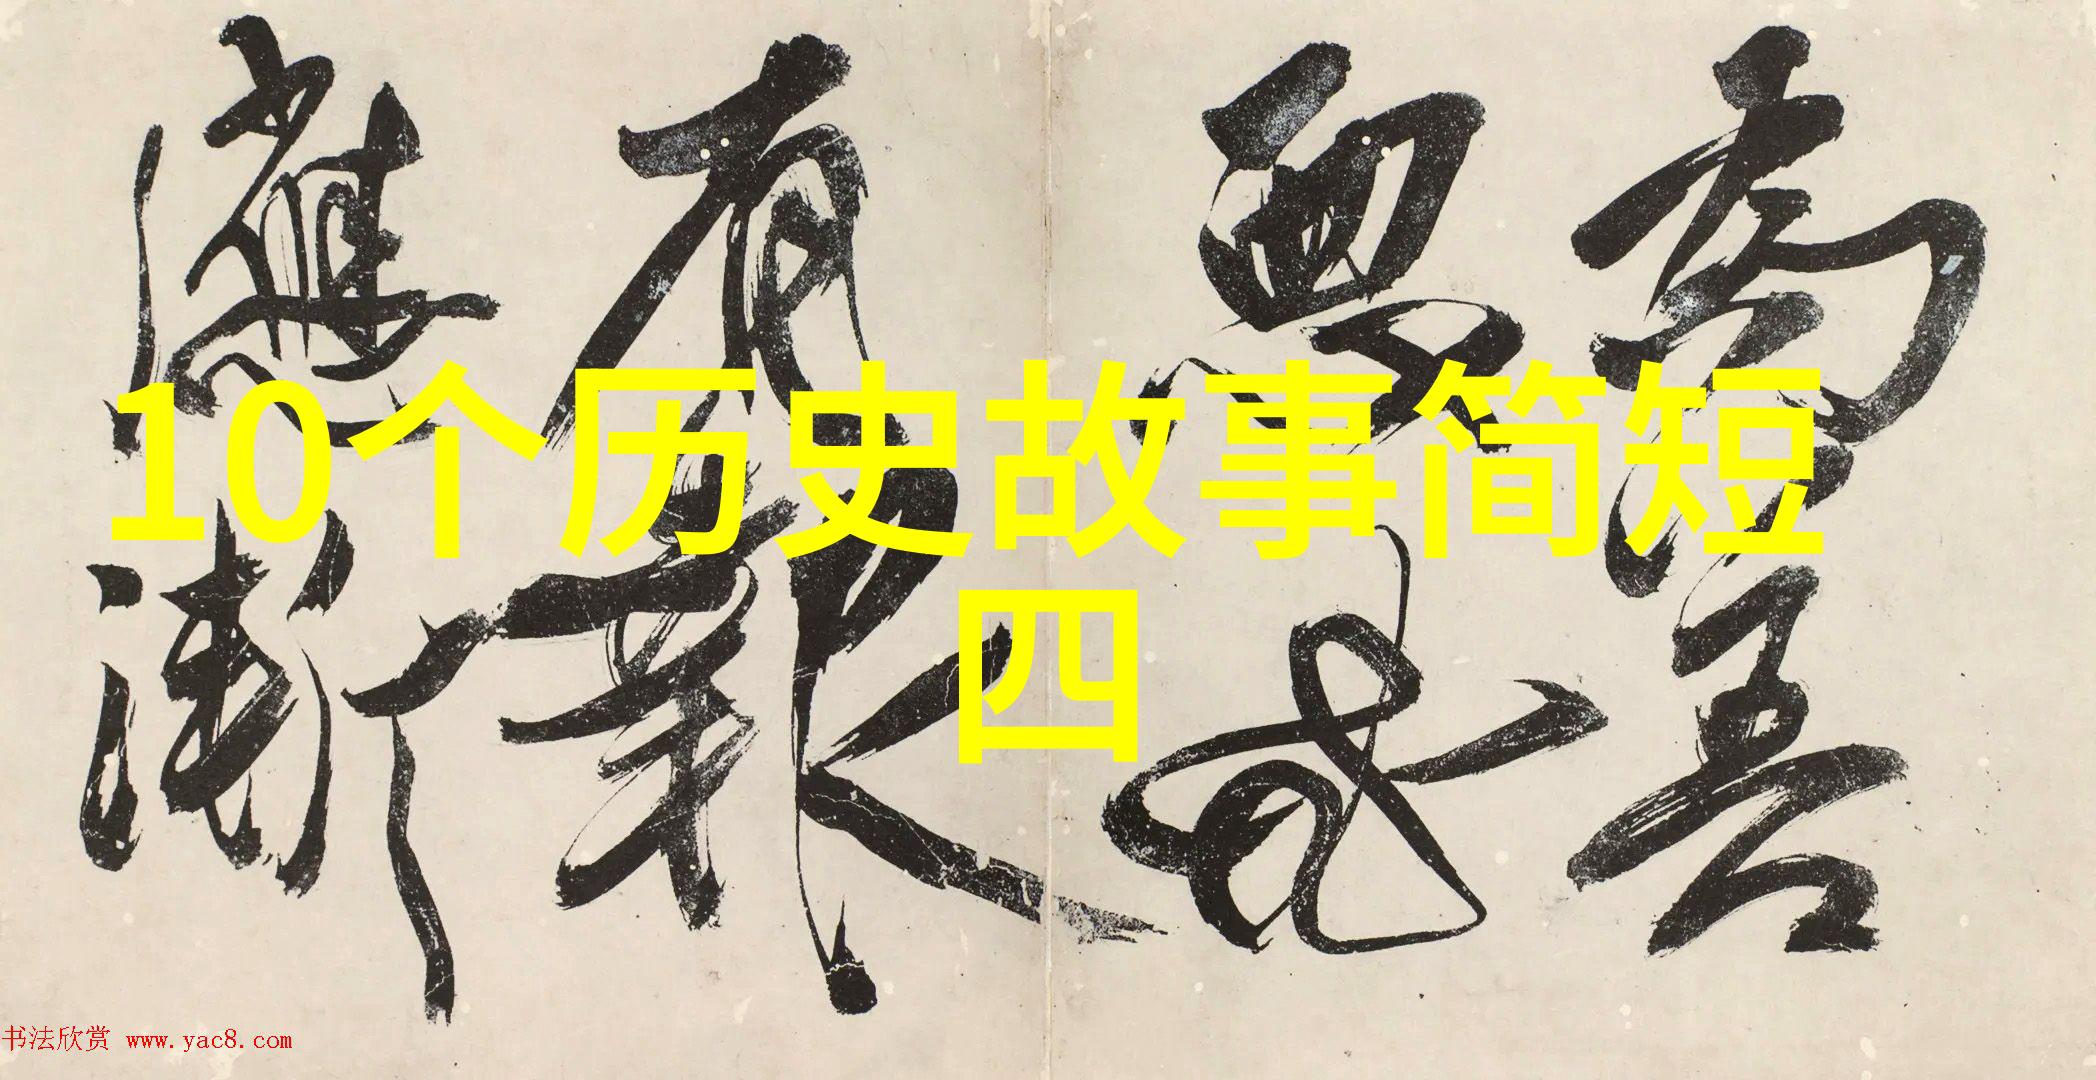 10个历史故事简短
四
為善
有報
應
书法欣赏 www.yac8.com